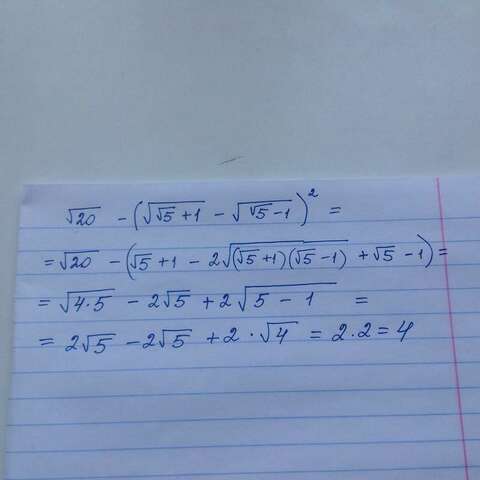 √20 - (√(√5+1) - √(√5-1))² =
= √20 - (√5 + 1 - 2√((√5+1)(√5-1)) + √5 - 1) =
= √(4·5) - 2√5 + 2√(5 - 1) =
= 2√5 - 2√5 + 2 · √4 = 2·2 = 4